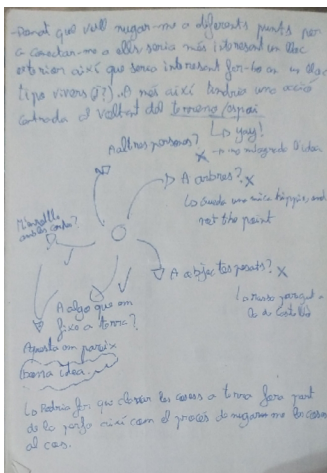 -Donat que vull nugar-me a diferents punts per
a conectar-me a ells seria más interesant un lloc
exterior així que seria interesant fer-ho en un lloc
tipo vivers (?). A més així tindria una acció
centrada el voltant del terreno/espai
↳ yay!
A altres persones?
x
-no me m'agrada l'idea
A arbres? x
↳ Suena una mica hippie, and
not the point
A objectes posats? x
↳ Massa
de Castillo
A algo que em
fixe a terra?
Aposta em pareix
bona idea.
↳ Podria fer que clavar les coses a terra fora part
de la perfo així com el procés de nugarme les coses
al cos.